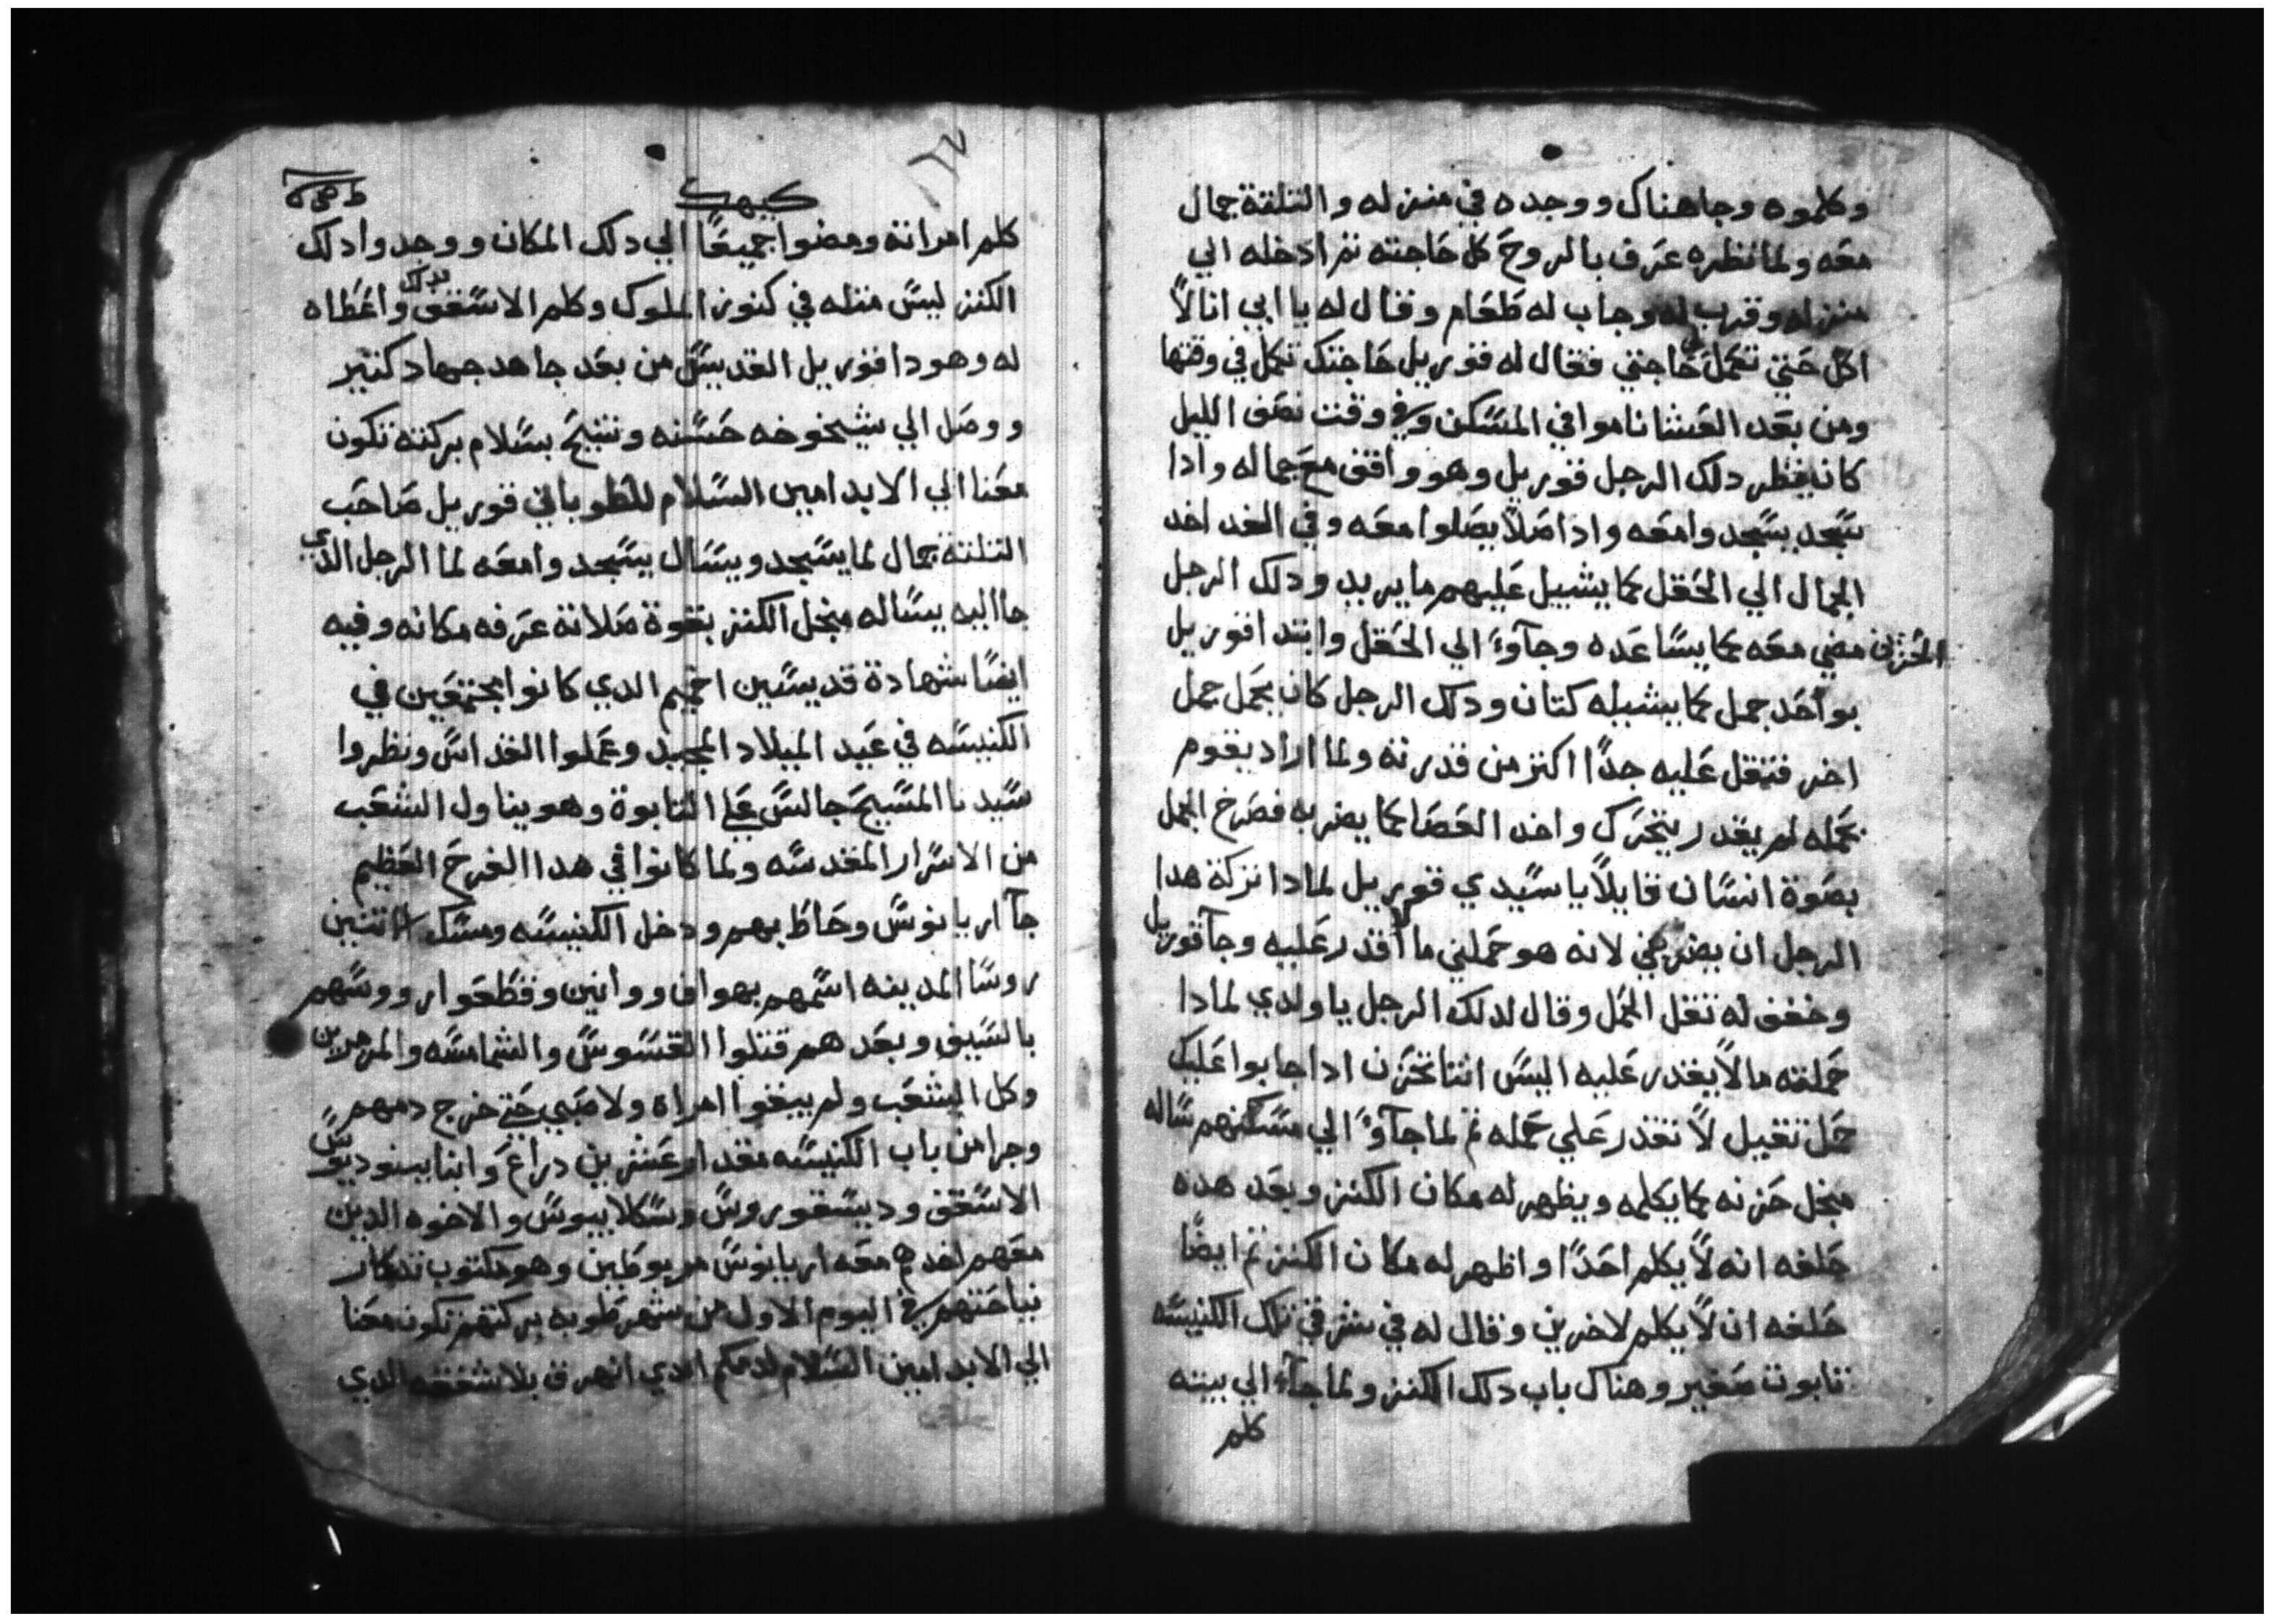 وكلموه وجا هناك ووجده في منزله والتلتة جمال
معه ولما نظره عرف بالروح كل حاجته تم ادخله الي
منزله وقرب له وجاب له طعام وقال له يا ابي انا لا
اكل حتي تكمل لي حاجتي فقال له قوريل حاجتك تكمل في وقتها
ومن بعد العشا ناموا في المسكن وفي وقت نصف الليل
كان ينظر دلك الرجل قوريل وهو واقف مع جماله وادا
سجد يسجدوا معه وادا صلا يصلوا معه وفي الغد اخد
الجمال الي الحقل كما يشيل عليهم ما يريد ودلك الرجل
الحزين مضي معه كما يساعده وجاوء الي الحقل وابتدا قوريل
بواحد جمل كما يشيله كتان ودلك الرجل كان يحمل جمل
اخر فتقل عليه جدا اكتر من قدرته ولما اراد يقوم
بحمله لم يقدر يتحرك واخد العصا كما يضربه فصرخ الجمل
بصوة انسان قايلا يا سيدي قوريل لمادا تركة هدا
الرجل ان يضربني لانه هو حملني ما لا اقدر عليه وجا قوريل
وخفف له تقل الحمل وقال لدلك الرجل يا ولدي لمادا
حملته ما لا يقدر عليه اليس انتا تحزن ادا جابوا عليك
حمل تقيل لا تقدر علي حمله تم لما جاوء الي مسكنهم ساله
منجل حزنه كما يكلمه ويظهر له مكان الكنز وبعد هده
حلفه انه لا يكلم احدا واظهر له مكان الكنز تم ايضا
حلفه ان لا يكلم لاخرين وقال له في شرقي تلك الكنيسه
تابوت صغير وهناك باب دلك الكنز ولما جاء الي بيته
كلم
كيهك
كلم امراته ومضوا جميعا الي دلك المكان ووجدوا دلك
الكنز ليس متله في كنوز الملوك وكلم الاسقف بدلك واعطاه
له وهودا قوريل القديس من بعد جاهد جهاد كتير
ووصل الي شيخوخه حسنه وتنيح بسلام بركته تكون
معنا الي الابد امين السلام للطوباني قوريل صاحب
التلتة جمال لما يسجد ويسال يسجدوا معه لما الرجل الدي
جا اليه يساله منجل الكنز بقوة صلاته عرفه مكانه وفيه
ايضا شهادة قديسين اخميم الدي كانوا مجتمعين في
الكنيسه في عيد الميلاد المجيد وعملوا القداس ونظروا
سيدنا المسيح جالس علي التابوة وهو يناول الشعب
من الاسرار المقدسه ولما كانوا في هدا الفرح العظيم
جا اريانوس وحاط بهم ودخل الكنيسه ومسك الاتنين
روسا المدينه اسمهم بهواف ووانين وقطعوا رووسهم
بالسيف وبعدهم قتلوا القسوس والشمامسه والمرهبين
وكل الشعب ولم يبقوا امراه ولا صبي حتي خرج دمهم
وجرا من باب الكنيسه مقدار عشرين دراع وانبا بينوديوس
الاسقف وديسقوروس وسكلابيوس والاخوه الدين
معهم اخدهم معه اريانوس مربوطين وهو مكتوب تدكار
نياحتهم في اليوم الاول من شهر طوبه بركتهم تكون معنا
الي الابد امين السلام لدمكم الدي انهرق بلا شفقه الدي